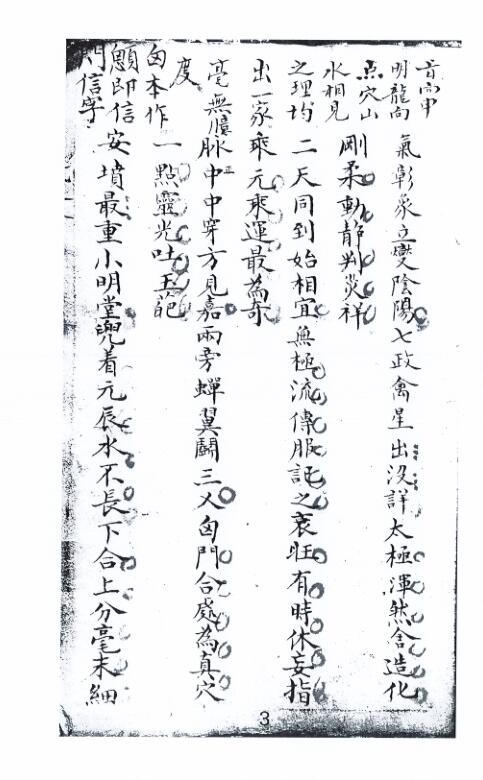 首古甲
明龍向
点穴山
水相見
之理均
出一家
毫無騰
度
囟本作
顖即信
門信字
氣彰象立變陰陽七政禽星出没詳太極渾然含造化
剛柔動靜判災祥
二天同到始相宜無極流傳服託之衰旺有時休妄指
乘元乘運最為奇
脉正中中穿方見嘉兩旁蟬翼關三乂囟門合處為真穴
一點靈光吐玉葩
安墳最重小明堂兜着元辰水不長下合上分毫末細
3